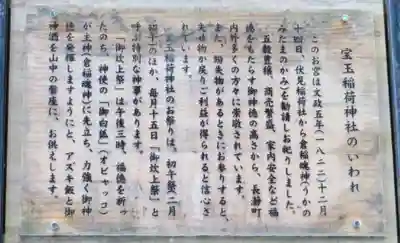 宝玉稲荷神社のいわれ
このお宮は文政五年(一八二二)十二月
十四日、伏見稲荷神社から倉稲魂神(うかの
みたまのかみ)を勧請しお祀りしました。
五穀豊穣、商売繁盛、家内安全など福
徳をもたらす、御神徳の高さから、長瀞町
内外多くの方々に崇敬されています。
また、紛失物があるときにお参りすると、
失せ物が戻りご利益が得られると信心さ
れています。
宝玉稲荷神社のお祭りは、初午祭(二月
初午)のほか、毎月十五日「御炊上祭」と
呼ぶ特別な神事があります。
「御炊上祭」は午後三時、福徳を祈っ
たのち、神使の「御白狐」(オビャッコ)
が主神(倉稲魂神)に先立ち、力強く御神
徳を発揮しますようにと、アズキ飯と御
神酒を山中の磐座に、お供えします。